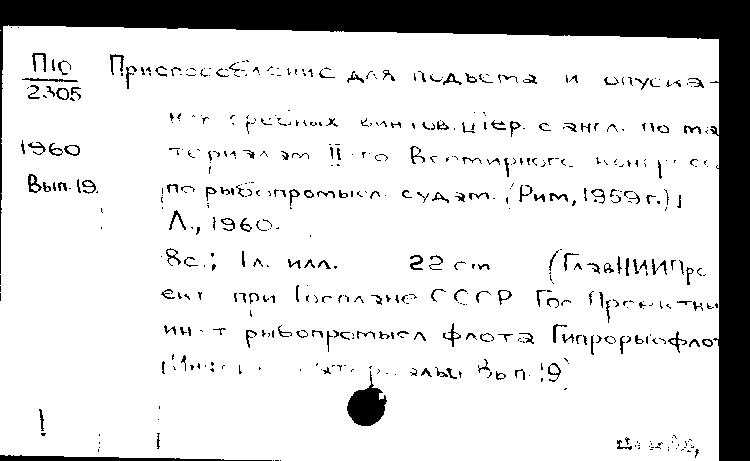 П10 Приспособление для подъема и опуска-
2305
ния гребных винтов. [Пер. с англ. по ма
1960 териалам II-го Всемирного конгресса
Вып. 19. по рыбопромысл. судам. (Рим, 1959 г.)]
Л., 1960.
8с.; 1л. илл. 22 cm (ГлавНИИПро
ект при Госплане СССР Гос Проектны
ин-т рыбопромысл флота Гипрорыбфлот
Вып. 19)